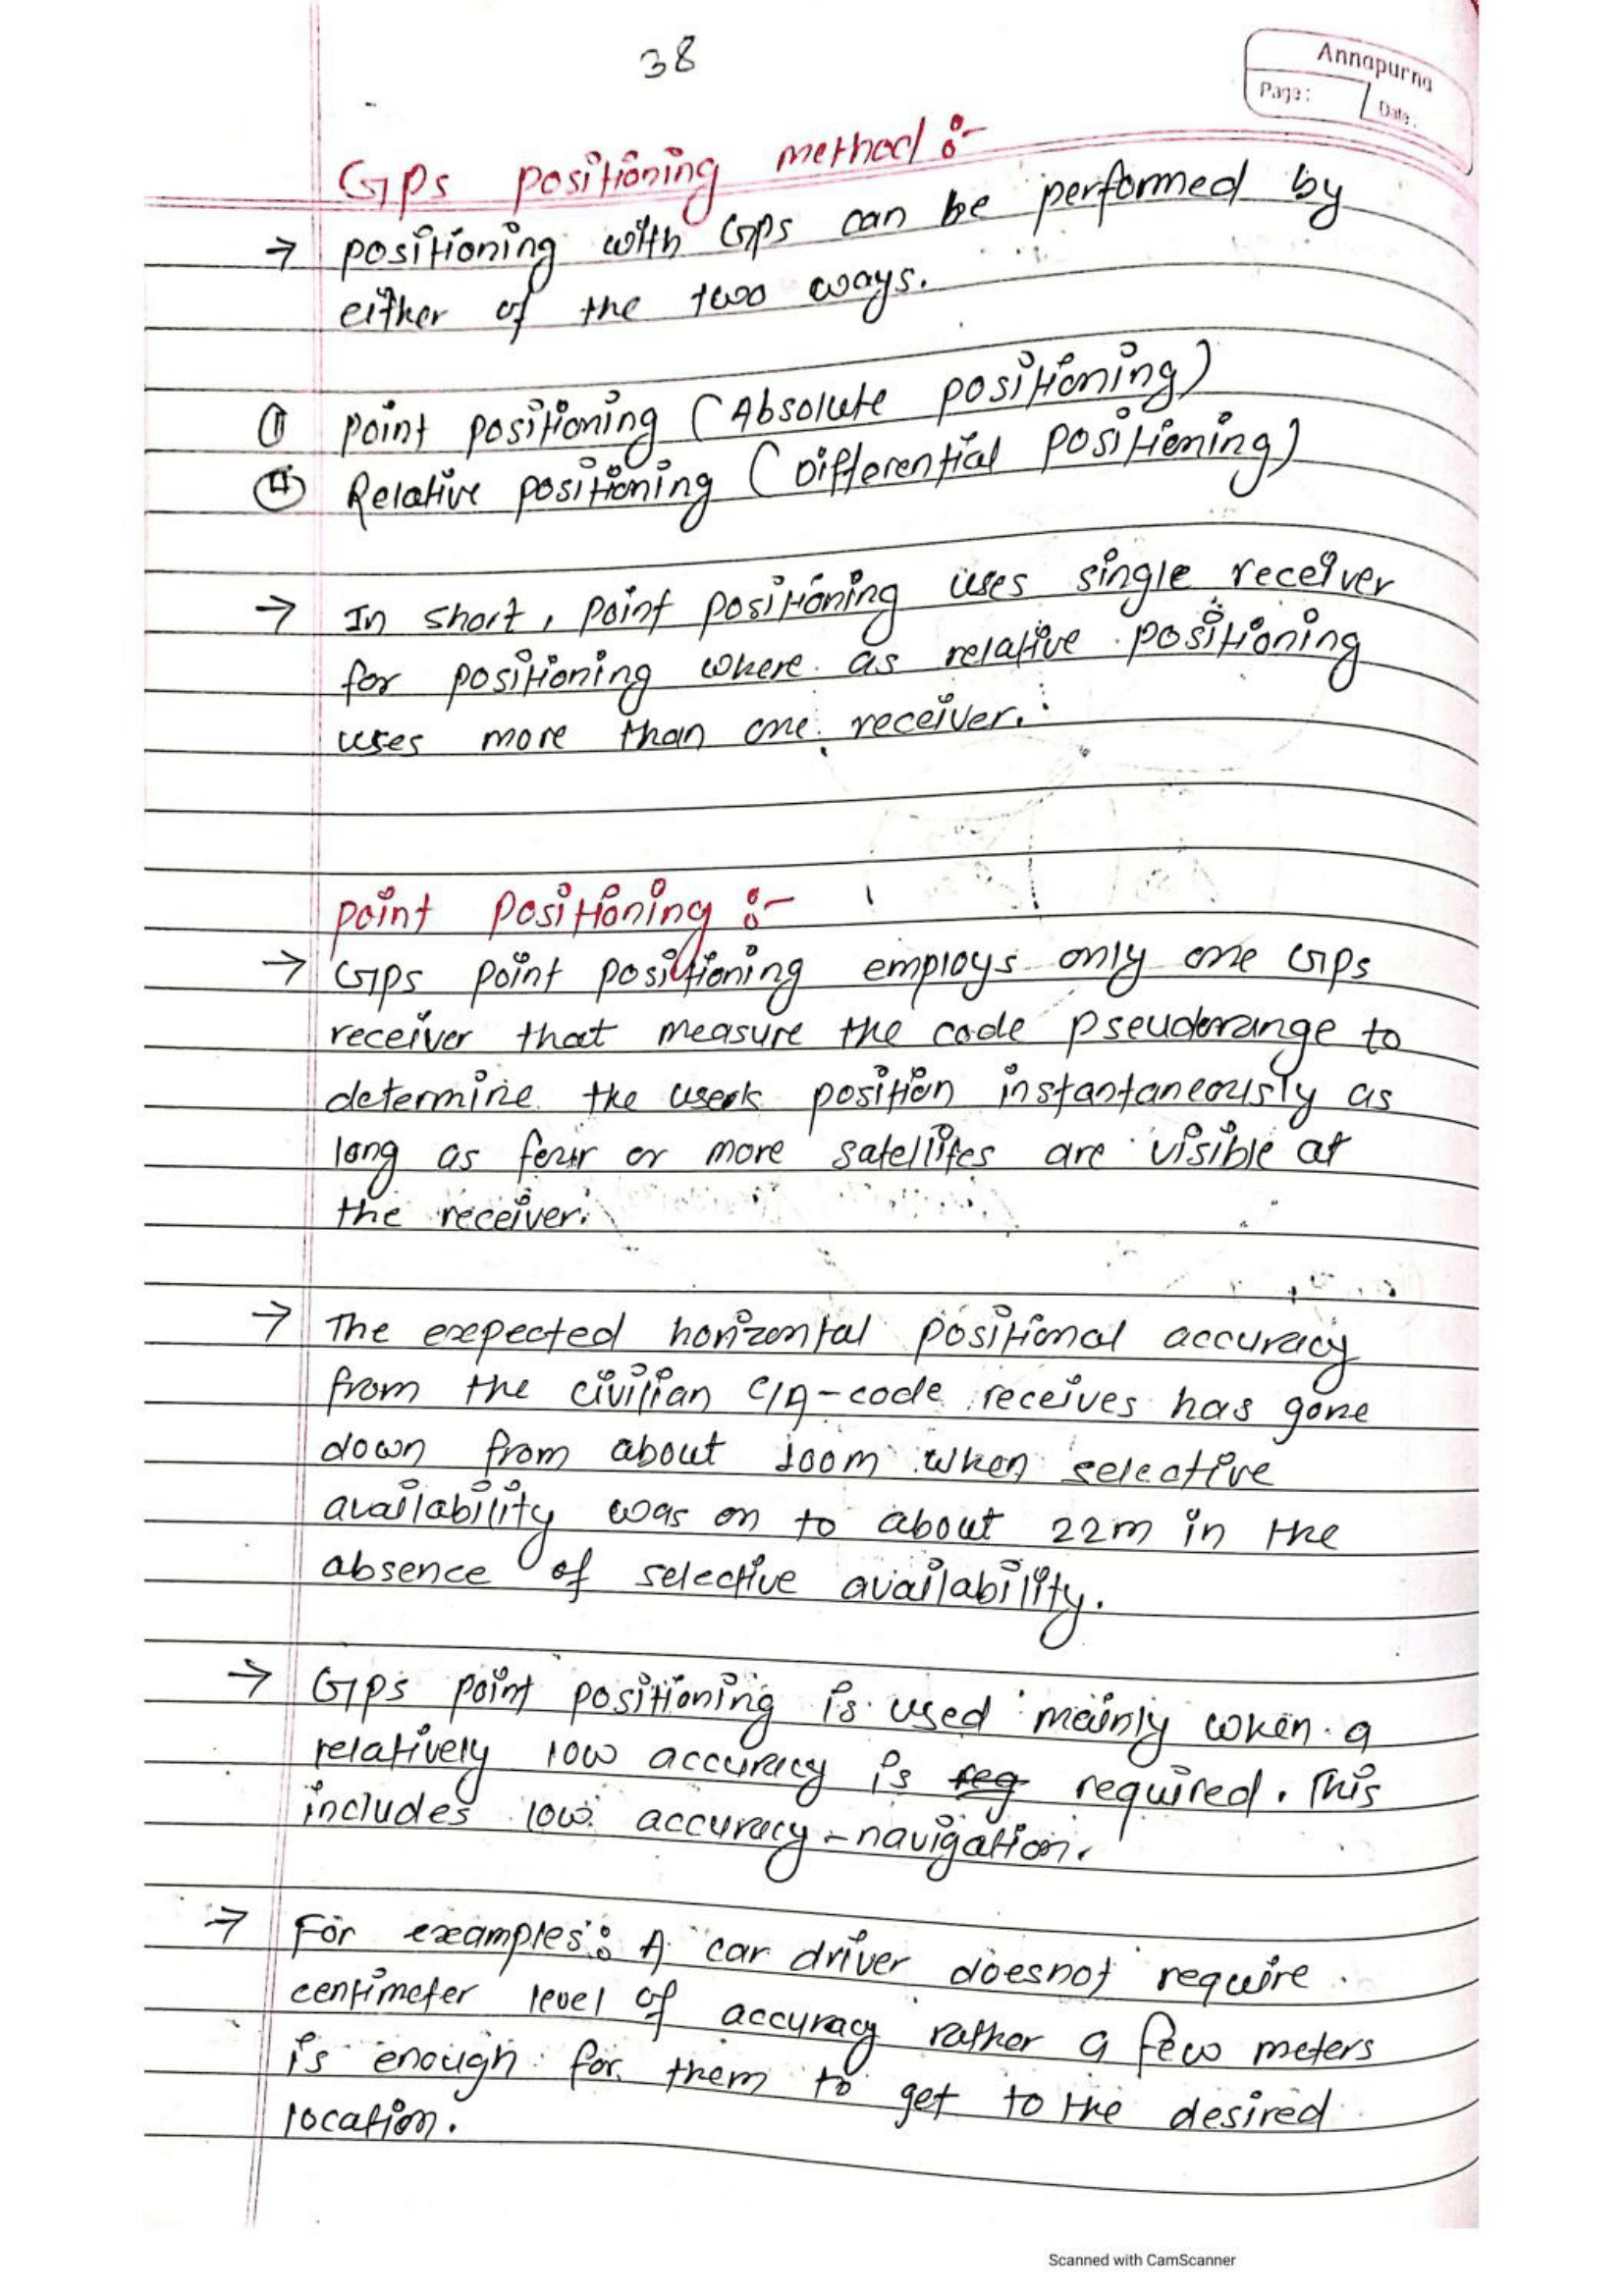 38
Annapurna
Page:
Date:
GPS positioning method :-
→ positioning with GPS can be performed by
either of the two ways.
① point positioning (Absolute positioning)
② Relative positioning (Differential Positioning)
→ In short, point positioning uses single receiver
for positioning where as relative positioning
uses more than one receiver.
point positioning :-
→ GPS point positioning employs only one GPS
receiver that measure the code pseudorange to
determine the user's position instantaneously as
long as four or more satellites are visible at
the receiver.
→ The expected horizontal positional accuracy
from the civilian C/A-code receives has gone
down from about 100m when selective
availability was on to about 22m in the
absence of selective availability.
→ GPS point positioning is used mainly when a
relatively low accuracy is req required. This
includes low accuracy-navigation.
→ For examples: A car driver doesnot require
centimeter level of accuracy rather a few meters
is enough for them to get to the desired
location.
Scanned with CamScanner